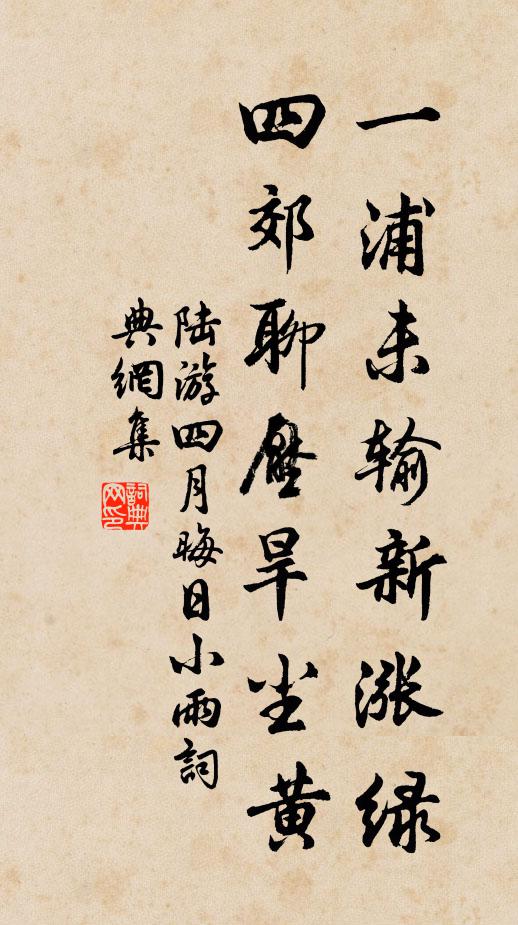 一浦未输新涨绿
四郊聊压旱尘黄
陆游四月晦日小雨詞
典網集
詞典网印